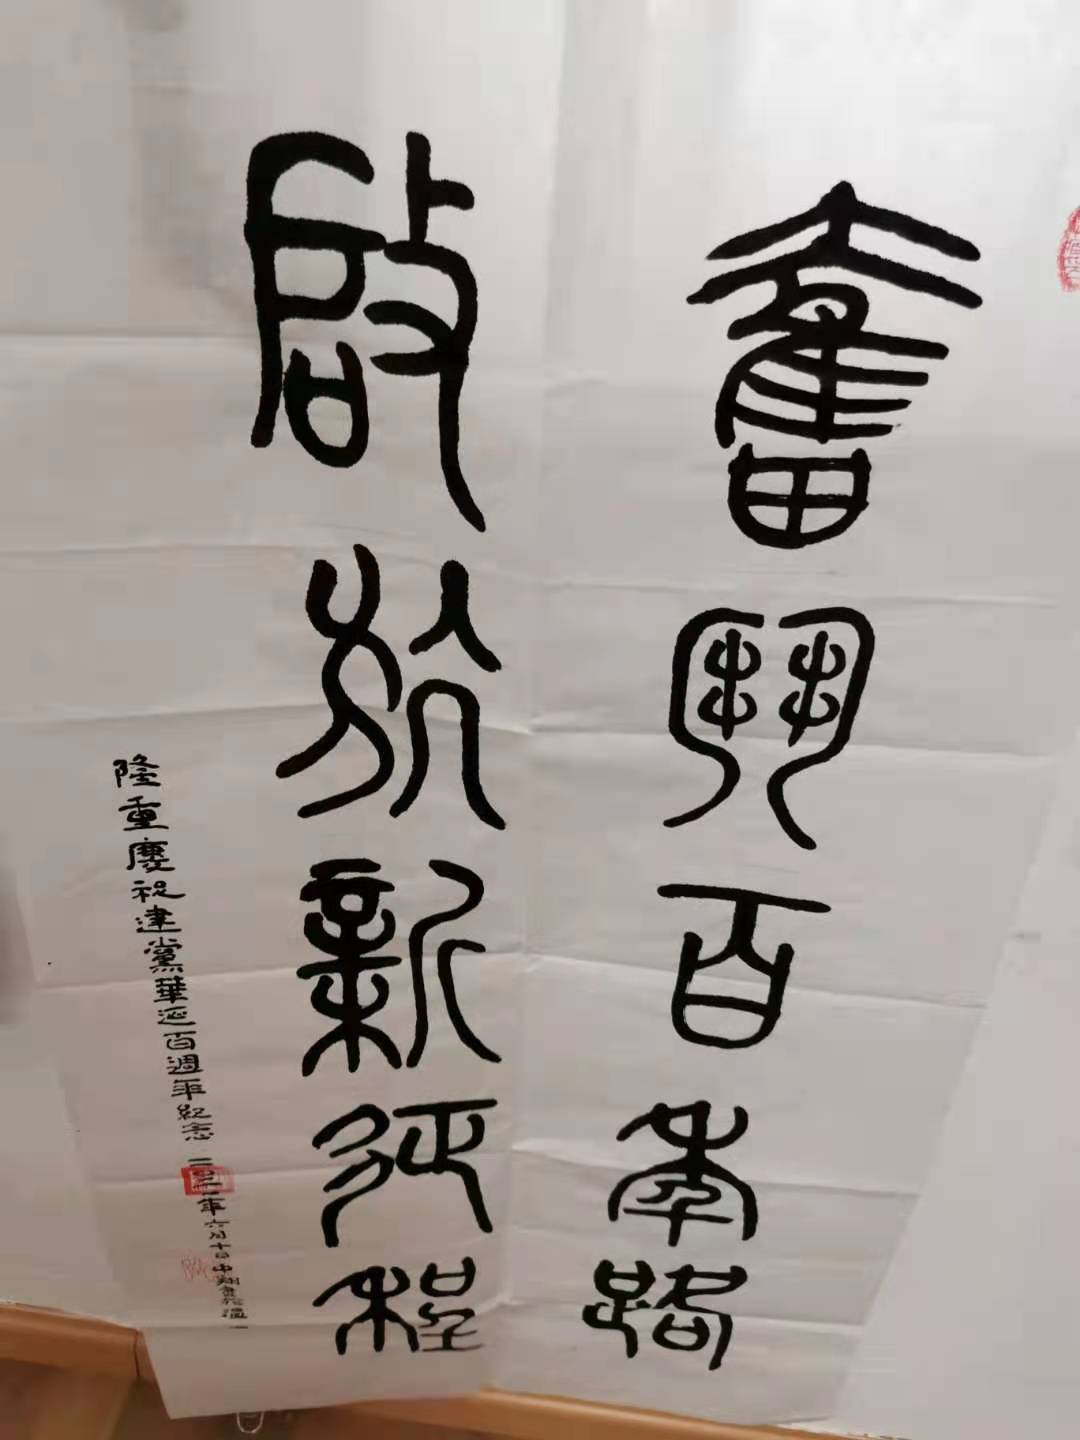 奮鬥百年路
啟航新征程
隆重慶祝建黨華誕百週年紀念
二〇二一年六月十日中